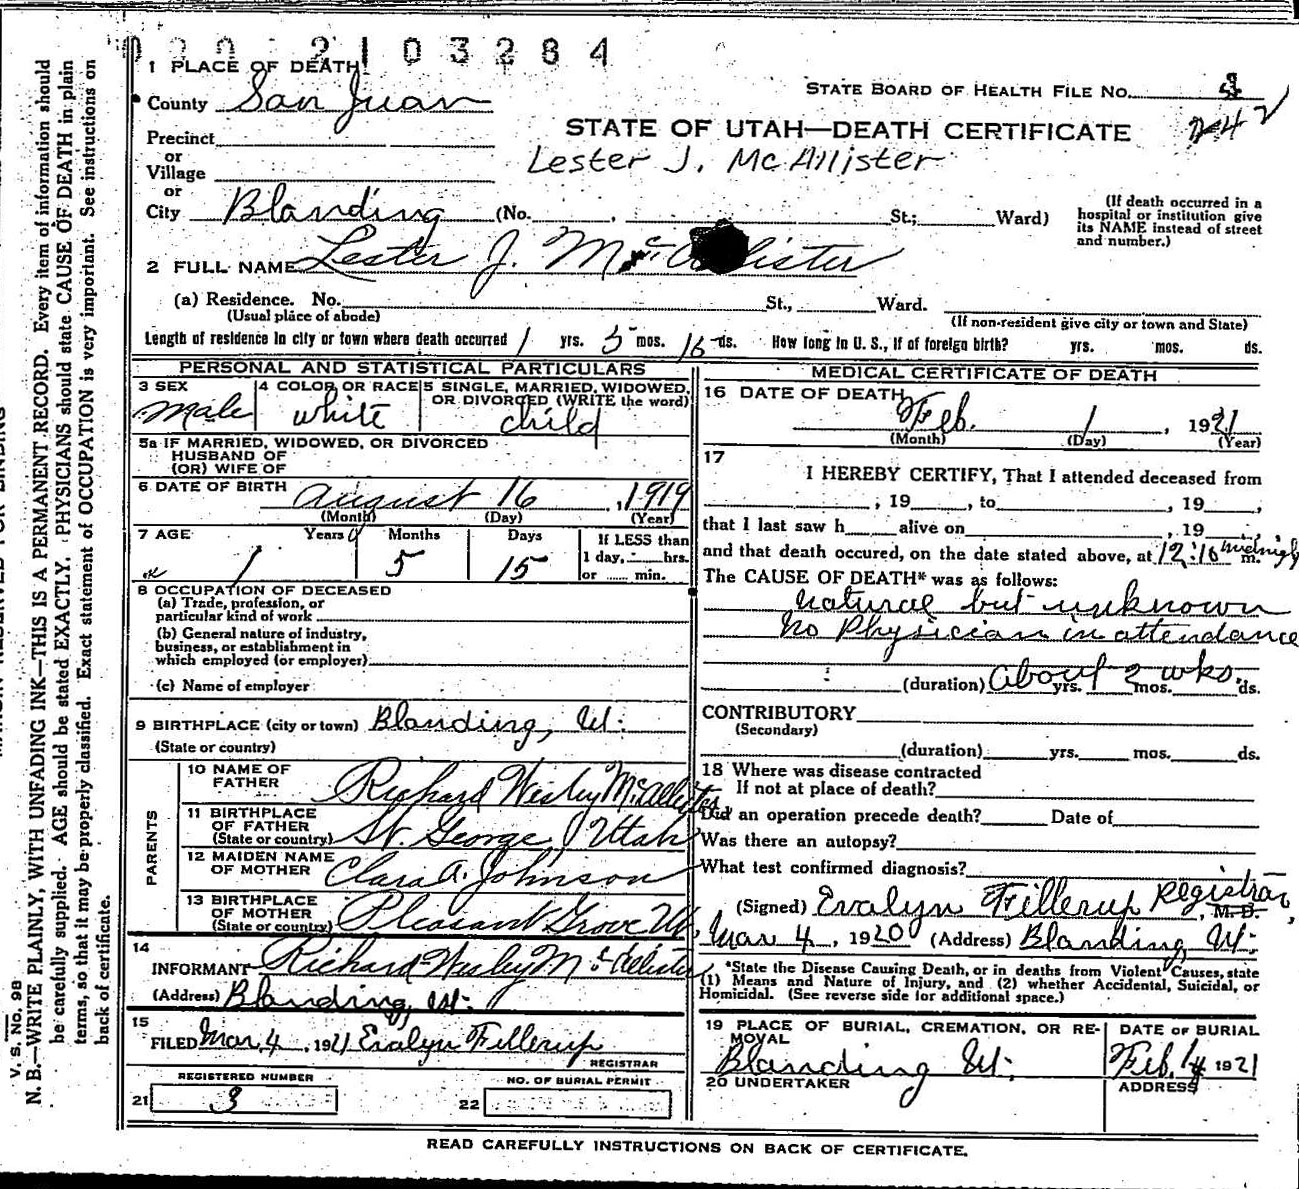 2103284
1 PLACE OF DEATH
STATE BOARD OF HEALTH FILE No. 3
County San Juan
242
STATE OF UTAH—DEATH CERTIFICATE
Lester J. McAllister
Precinct
or
Village
or
City Blanding (No. , St.; Ward)
(If death occurred in a hospital or institution give its NAME instead of street and number.)
2 FULL NAME Lester J. McAllister
(a) Residence. No. St., Ward.
(Usual place of abode) (If non-resident give city or town and State)
Length of residence in city or town where death occurred 1 yrs. 5 mos. 16 ds. How long in U. S., if of foreign birth? yrs. mos. ds.
PERSONAL AND STATISTICAL PARTICULARS
3 SEX Male
4 COLOR OR RACE white
5 SINGLE, MARRIED, WIDOWED, OR DIVORCED (WRITE the word) child
5a IF MARRIED, WIDOWED, OR DIVORCED
HUSBAND OF
(OR) WIFE OF
6 DATE OF BIRTH August 16, 1919
(Month) (Day) (Year)
7 AGE Years 1 Months 5 Days 15 If LESS than 1 day, hrs. or min.
8 OCCUPATION OF DECEASED
(a) Trade, profession, or particular kind of work
(b) General nature of industry, business, or establishment in which employed (or employer)
(c) Name of employer
9 BIRTHPLACE (city or town) Blanding, Ut.
(State or country)
PARENTS
10 NAME OF FATHER Richard Wesley McAllister
11 BIRTHPLACE OF FATHER (State or country) St. George, Utah
12 MAIDEN NAME OF MOTHER Clara A. Johnson
13 BIRTHPLACE OF MOTHER (State or country) Pleasant Grove Ut.
14 INFORMANT Richard Wesley McAllister
(Address) Blanding, Ut.
15 FILED Mar. 4, 1921 Evalyn Fillerup
REGISTRAR
REGISTERED NUMBER
21 3
NO. OF BURIAL PERMIT
22
MEDICAL CERTIFICATE OF DEATH
16 DATE OF DEATH Feb. 1, 1921
(Month) (Day) (Year)
17 I HEREBY CERTIFY, That I attended deceased from
, 19 , to , 19 ,
that I last saw h alive on , 19 ,
and that death occured, on the date stated above, at 12:10 midnight m.
The CAUSE OF DEATH* was as follows:
natural but unknown
No Physician in attendance
(duration) About yrs. 2 wks. mos. ds.
CONTRIBUTORY
(Secondary)
(duration) yrs. mos. ds.
18 Where was disease contracted
If not at place of death?
Did an operation precede death? Date of
Was there an autopsy?
What test confirmed diagnosis?
(Signed) Evalyn Fillerup Registrar, M. D.
Mar 4, 1920 (Address) Blanding, Ut.
*State the Disease Causing Death, or in deaths from Violent Causes, state
(1) Means and Nature of Injury, and (2) whether Accidental, Suicidal, or
Homicidal. (See reverse side for additional space.)
19 PLACE OF BURIAL, CREMATION, OR REMOVAL Blanding Ut.
DATE OF BURIAL Feb. 1921
20 UNDERTAKER
ADDRESS
READ CAREFULLY INSTRUCTIONS ON BACK OF CERTIFICATE.
V. S. No. 98
N. B.—WRITE PLAINLY, WITH UNFADING INK—THIS IS A PERMANENT RECORD. Every item of information should
be carefully supplied. AGE should be stated EXACTLY. PHYSICIANS should state CAUSE OF DEATH in plain
terms, so that it may be properly classified. Exact statement of OCCUPATION is very important. See instructions on
back of certificate.